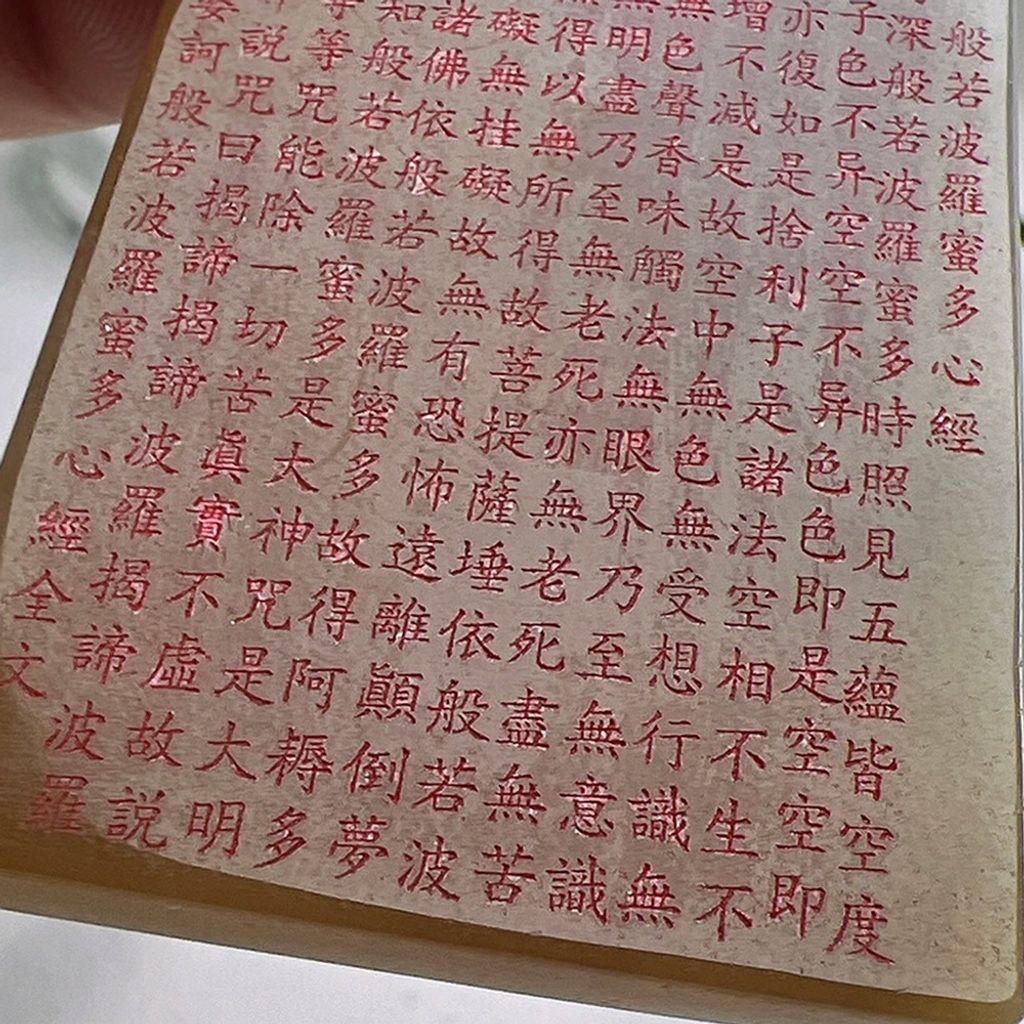 般若波羅蜜多心經
深般若波羅蜜多時照見五蘊皆空度
子色不异空空不异色色即是空空即
亦復如是捨利子是諸法空相不生不
增不減是故空中無色無受想行識無
無色聲香味觸法無眼界乃至無意識
無明盡乃至無老死亦無老死盡無苦
無得以無所得故菩提薩埵依般若波
礙無挂礙故無有恐怖遠離顛倒夢
諸佛依般若波羅蜜多故得阿耨多
知般若波羅蜜多是大神咒是大明
等等咒能除一切苦眞實不虛故説
説咒曰揭諦揭諦波羅揭諦波羅
訶般若波羅蜜多心經全文